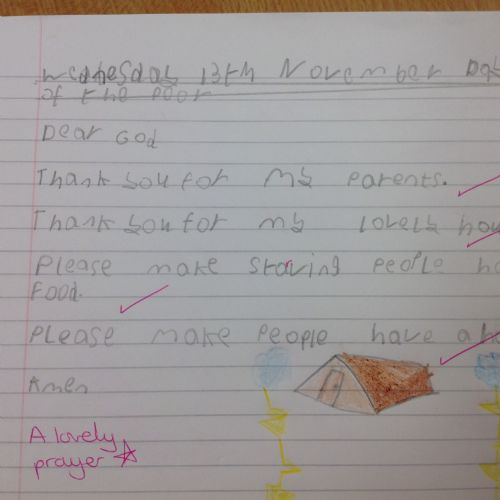 Wednesday 13th November Day
of the Poor
Dear God
Thank you for my parents.
Thank you for my lovely hou
Please make staving people ha
Food.
Please make people have a ho
Amen
A lovely
prayer